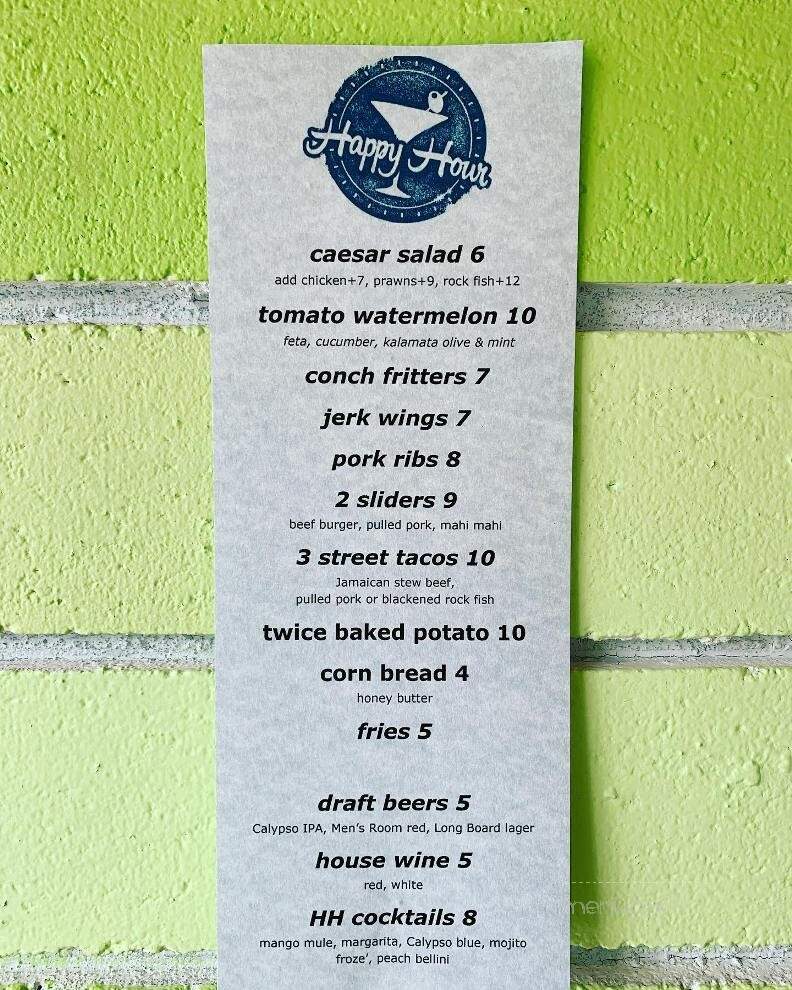 Happy Hour
caesar salad 6
add chicken+7, prawns+9, rock fish+12
tomato watermelon 10
feta, cucumber, kalamata olive & mint
conch fritters 7
jerk wings 7
pork ribs 8
2 sliders 9
beef burger, pulled pork, mahi mahi
3 street tacos 10
Jamaican stew beef,
pulled pork or blackened rock fish
twice baked potato 10
corn bread 4
honey butter
fries 5
draft beers 5
Calypso IPA, Men's Room red, Long Board lager
house wine 5
red, white
HH cocktails 8
mango mule, margarita, Calypso blue, mojito
froze', peach bellini